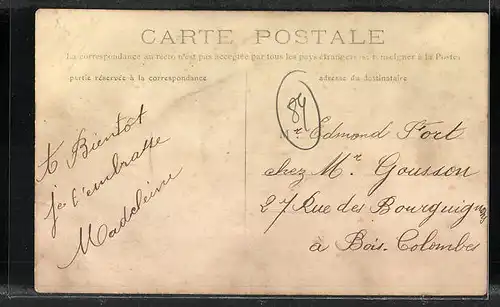 CARTE POSTALE
La correspondance au recto n'est pas acceptée par tous les pays étrangers (se renseigner à la Poste)
partie réservée à la correspondance
adresse du destinataire
84
à Bientôt
je t'embrasse
Madeleine
Mr Edmond Fort
chez Mr Gousson
27 Rue des Bourguignons
à Bois-Colombes